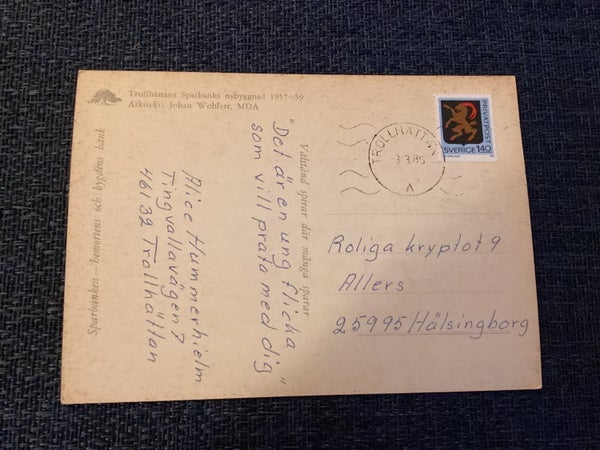 Trollhättans Sparbanks nybyggnad 1957-59
Arkitekt: Johan Wohlert, MDA
Sparbanken — hemortens och bygdens bank
Välstånd spirar där många sparar
"Det är en ung flicka
som vill prata med dig"
Alice Hummerhielm
Tingvallavägen 7
46132 Trollhättan
TROLLHÄTTAN
-3.3.85
A
PRIVATPOST
SVERIGE 140
Roliga kryptot 9
Allers
25995 Hälsingborg